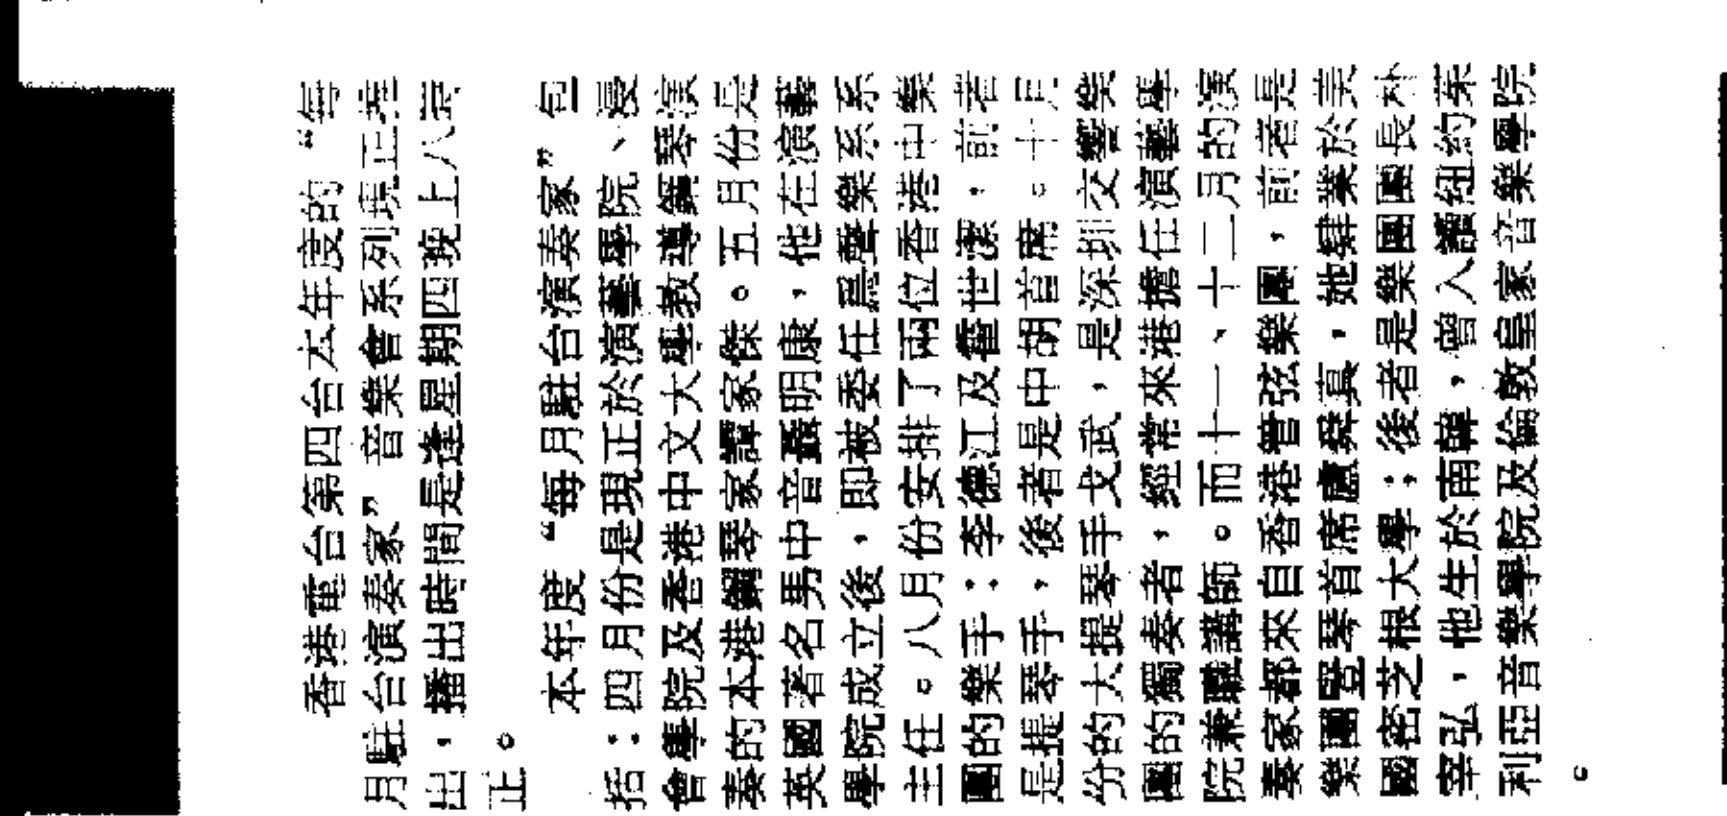 香港電台第四台本年度的“每
月駐台演奏家”音樂會系列現正推
出，播出時間是逢星期四晚上八時
正。
本年度“每月駐台演奏家”包
括：四月份是現正於演藝學院、浸
會書院及香港中文大學教導鋼琴演
奏的本港鋼琴家譚家傑。五月份是
英國著名男中音聶明康，他在演藝
學院成立後，即被委任爲聲樂系系
主任。八月份安排了兩位香港中樂
團的樂手：李德江及霍世潔，前者
是提琴手，後者是中胡首席。十月
份的大提琴手戈武，是深圳交響樂
團的獨奏者，經常來港擔任演藝學
院兼職講師。而十一、十二月的演
奏家都來自香港管弦樂團，前者是
樂團豎琴首席盧舜真，她肄業於美
國密芝根大學；後者是樂團團長朴
宰弘，他生於南韓，曾入讀紐約茱
利亞音樂學院及倫敦皇家音樂學院
。